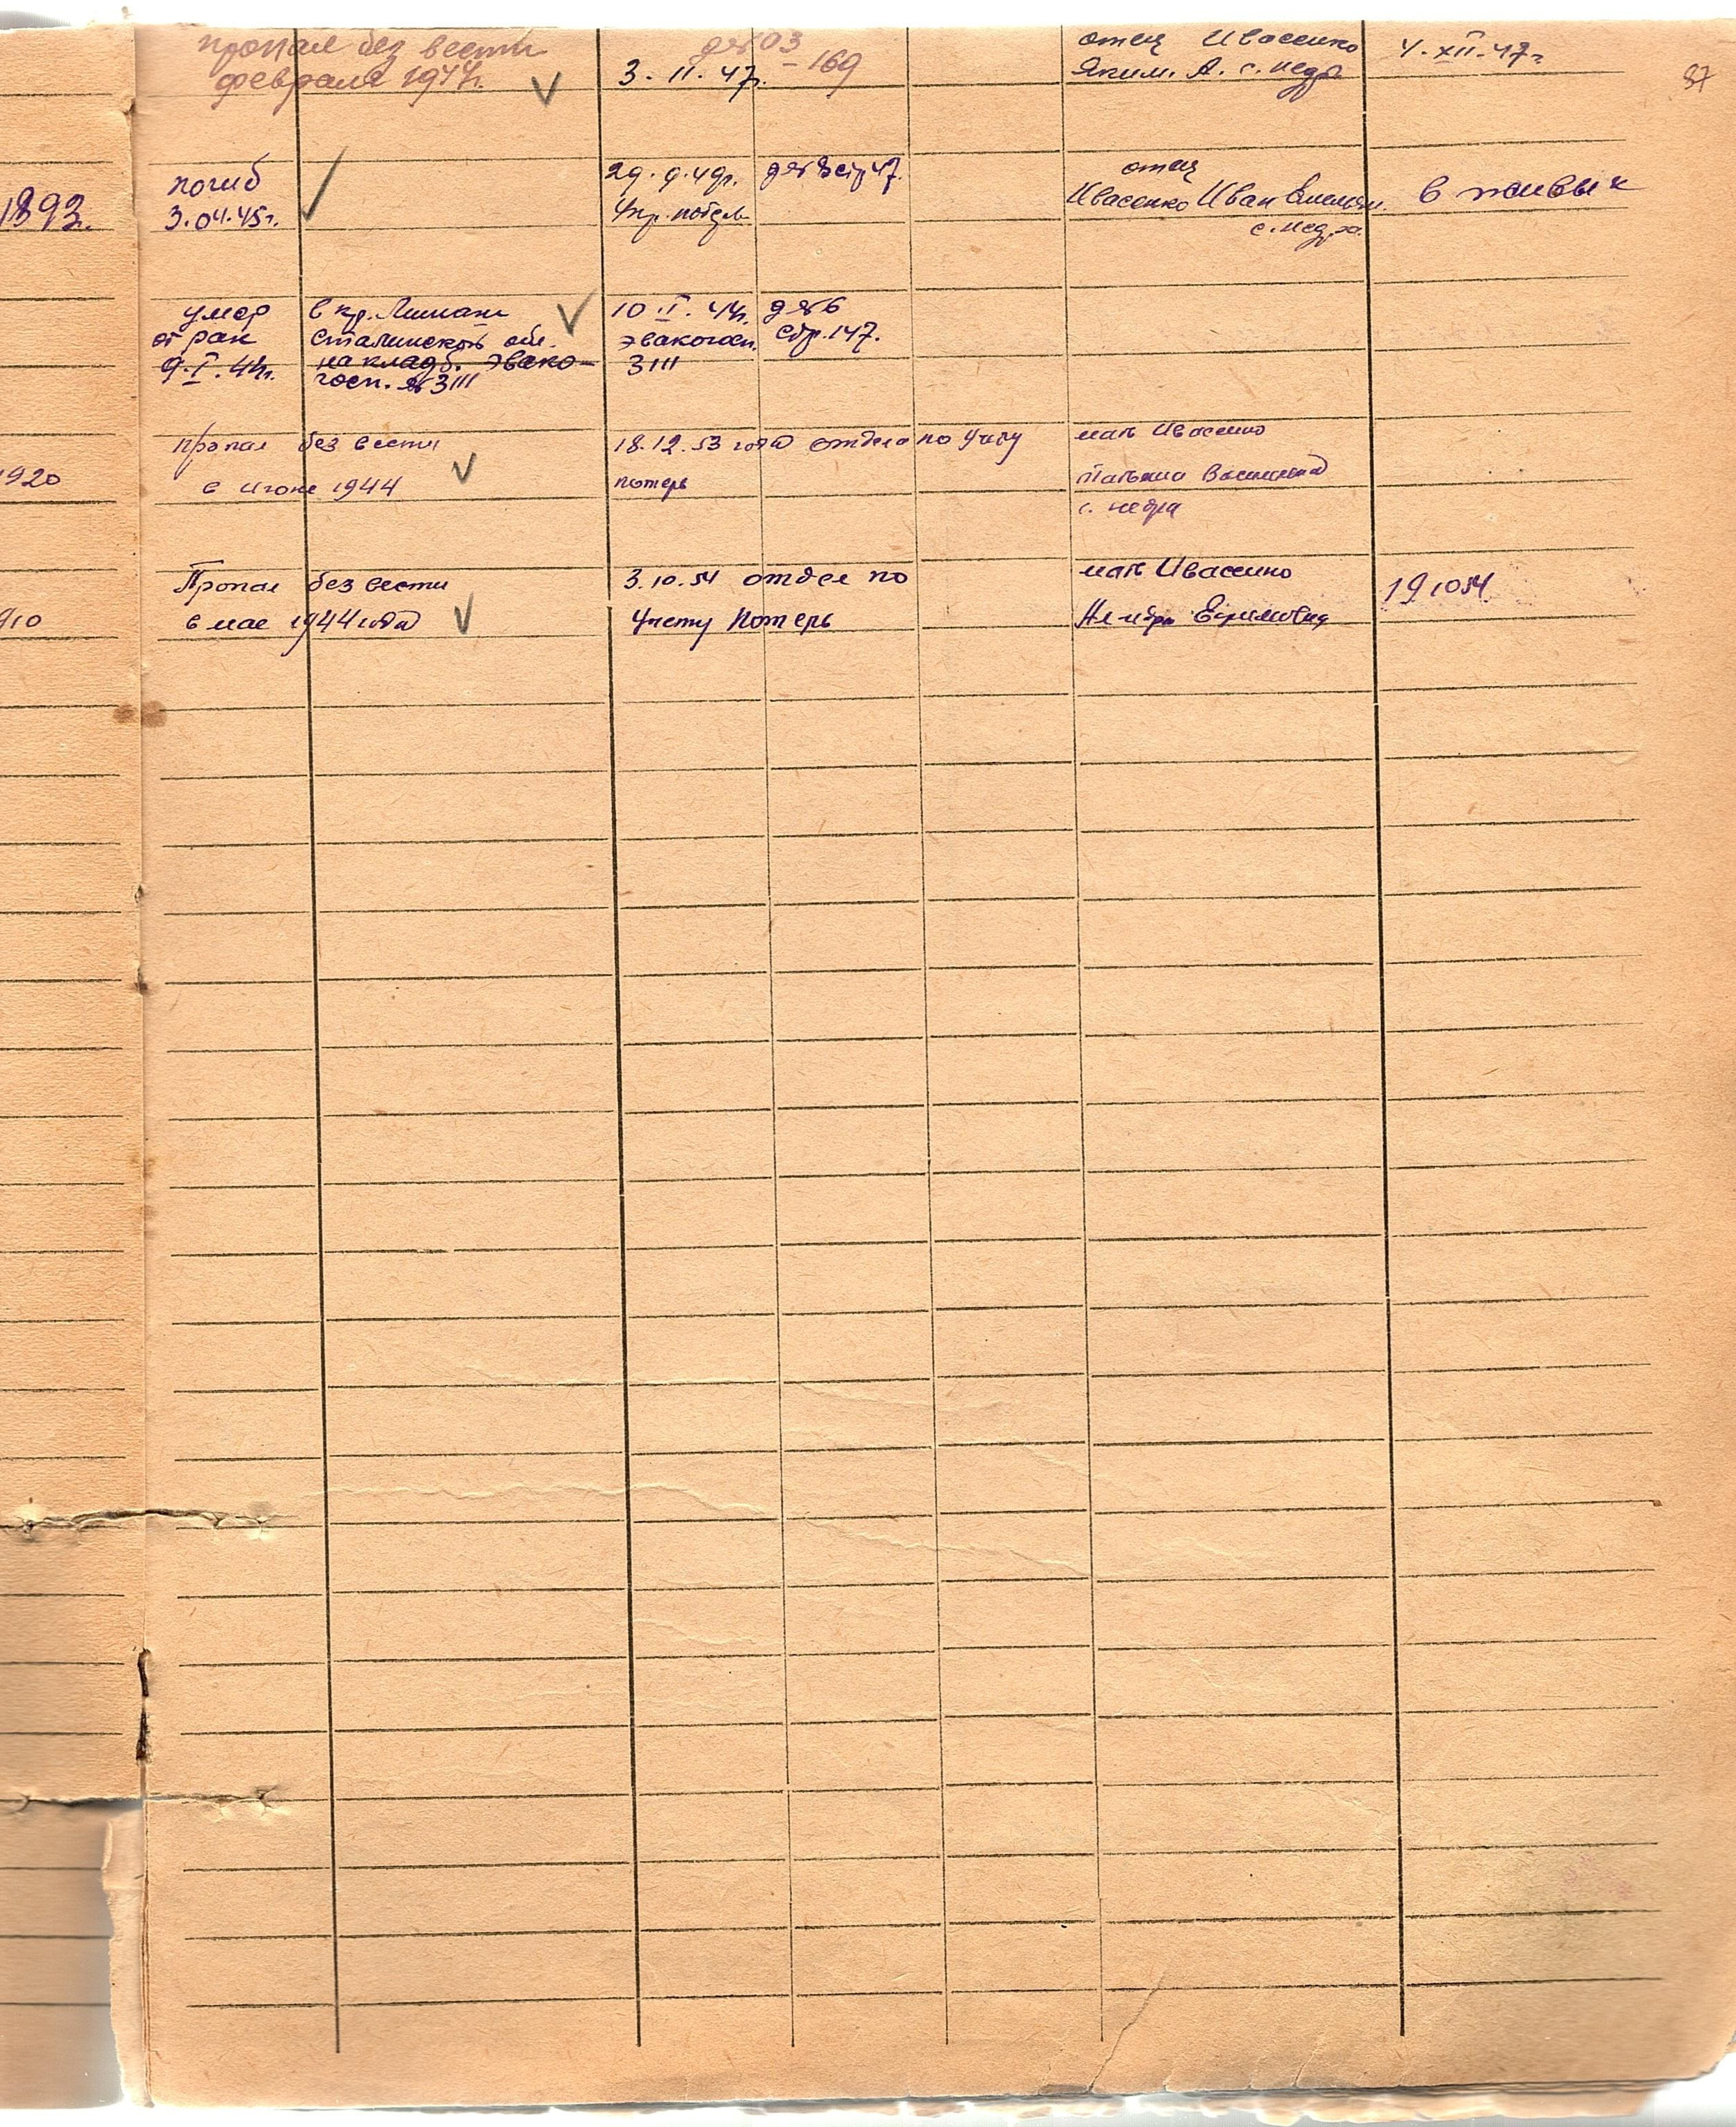 87
пропал без вести
февраля 1944г.
дя№ 03
3.11.47г. - 169
отец Ивасенко
Яким. А. с. Недра
4.XII.47г.
1893.
погиб
3.04.45г.
29.9.49г. дя№8 стр 47.
Укр.
отец
Ивасенко Иван
с. Недра.
в живых
умер
от ран
9.I.44г.
в кр. Лиман
Сталинской обл.
на кладб. эвако-
госп. №3111
10.I.44г. дя№6
эвакогосп. стр.147.
3111
1920
Пропал без вести
в июне 1944
18.12.53 года отдела по учету
потерь
мать Ивасенко
Татьяна
с. Недра
910
Пропал без вести
в мае 1944 года
3.10.54 отдел по
Учету Потерь
мать Ивасенко
Ефимовна
191054